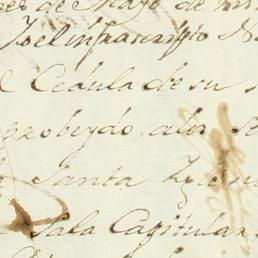 de Mayo de
Yo el infrascripto
Cedula de su
probeydo, a los
Santa
Sala Capitular